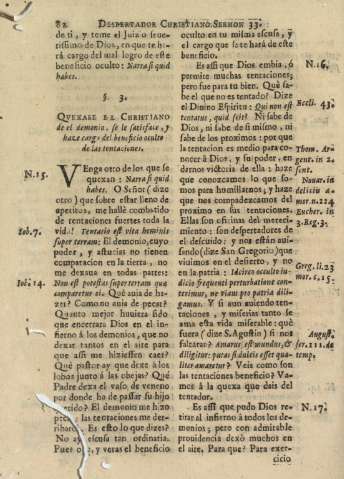 82 DESPERTADOR CHRISTIANO. SERMON 33.
de ti, y teme el Juizo seue-
rissimo de Dios, en que te ha-
rá cargo del mal logro de este
beneficio oculto: Narra si quid
habes.
§. 3.
QUEXASE EL CHRISTIANO
de el demonio, se le satisface, y
haze cargo del beneficio oculto
de las tentaciones.
N.15.
VEnga otro de los que se
quexan: Narra si quid
habes. O Señor (dize
otro) que sobre estar lleno de
apetitos, me hallè combatido
de tentaciones fuertes toda la
Iob.7.
vida! Tentatio est vita hominis
super terram: El demonio, cuyo
poder, y astucias no tienen
comparacion en la tierra, no
me dexaua en todas partes:
Iob. 14.
Non est potestas super terram quæ
comparetur ei. Què auia de ha-
zer? Como no auia de pecar?
Quanto mejor huuiera sido
que encerrara Dios en el in-
fierno à los demonios, que no
dexar tantos en el aire para
que assi me hiziessen caer?
Què pastor ay que dexe à los
lobos junto à las obejas? Què
Padre dexa el vaso de veneno
por donde ha de passar su hijo
El demonio me hizo
las tentaciones me der-
ribaron. Es esto lo que dizes?
No ay escusa tan ordinaria.
y veras el beneficio
oculto en tu misma escusa, y
el cargo que se te hará de este
beneficio.
N.16.
Es assi que Dios embia, ò
permite muchas tentaciones;
pero fue para tu bien. Què sa-
be el que no es tentado? Dize
Eccli. 43.
el Divino Espiritu: Qui non est
tentatus, quid scit? Ni sabe de
Dios, ni sabe de si mismo, ni
sabe de los proximos: por que
la tentacion es medio para co-
nocer à Dios, y su poder, en
darnos victoria de ella: haze
que conozcamos lo que so-
mos para humillarnos, y haze
que nos compadezcamos del
proximo en sus tentaciones.
Ellas son oficina del mereci-
miento: son despertadores de
el descuido: y nos están aui-
sando (dize San Gregorio) que
viuimos en el destierro, y no
en la patria: Idcirco occulto iu-
dicio frequenti perturbatione con-
terimur, ne viam pro patria dili-
gamus. Y si aun auiendo ten-
taciones, y miserias tanto se
ama esta vida miserable: què
fuera (dize S. Agustin) si nos
faltaran? Amarus est mundus, &
diligitur: putas si dulcis esset qua-
liter amaretur? Veis como son
las tentaciones beneficio? Va-
mos à la quexa que dais del
tentador.
N.17.
Es assi que pudo Dios re-
tirar al infierno à todos los de-
monios; pero con admirable
providencia dexò muchos en
el aire. Para que? Para exer-
cicio